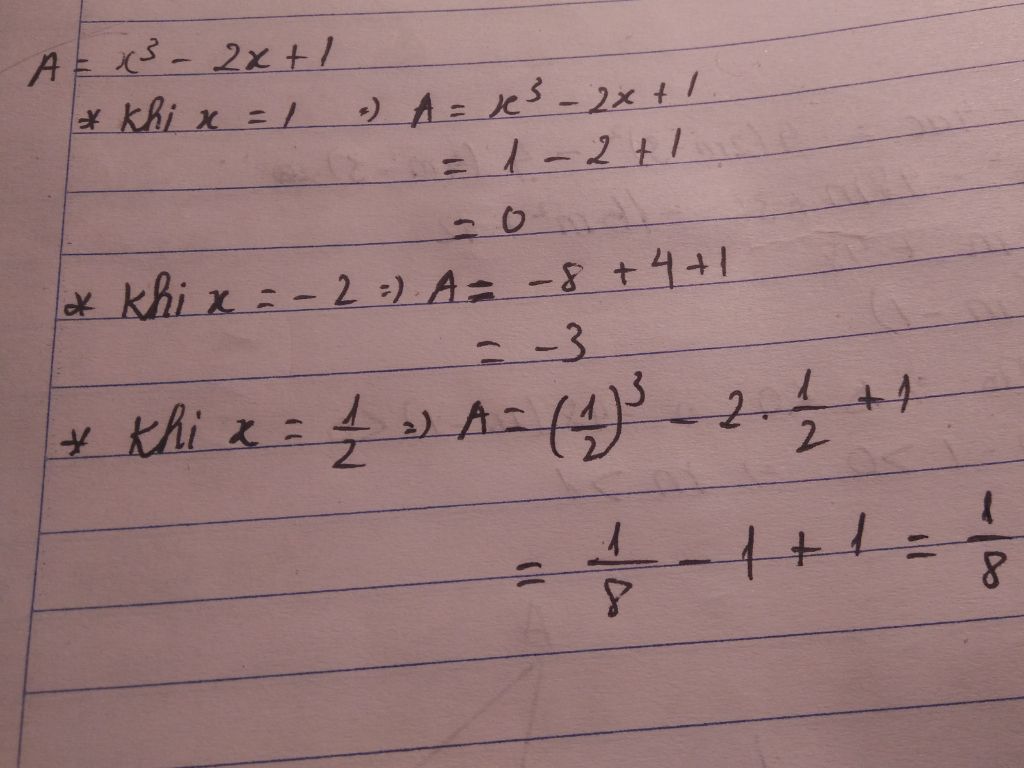 A = x³ - 2x + 1
* Khi x = 1 => A = x³ - 2x + 1
= 1 - 2 + 1
= 0
* Khi x = -2 => A = -8 + 4 + 1
= -3
* Khi x = 1/2 => A = (1/2)³ - 2 . 1/2 + 1
= 1/8 - 1 + 1 = 1/8